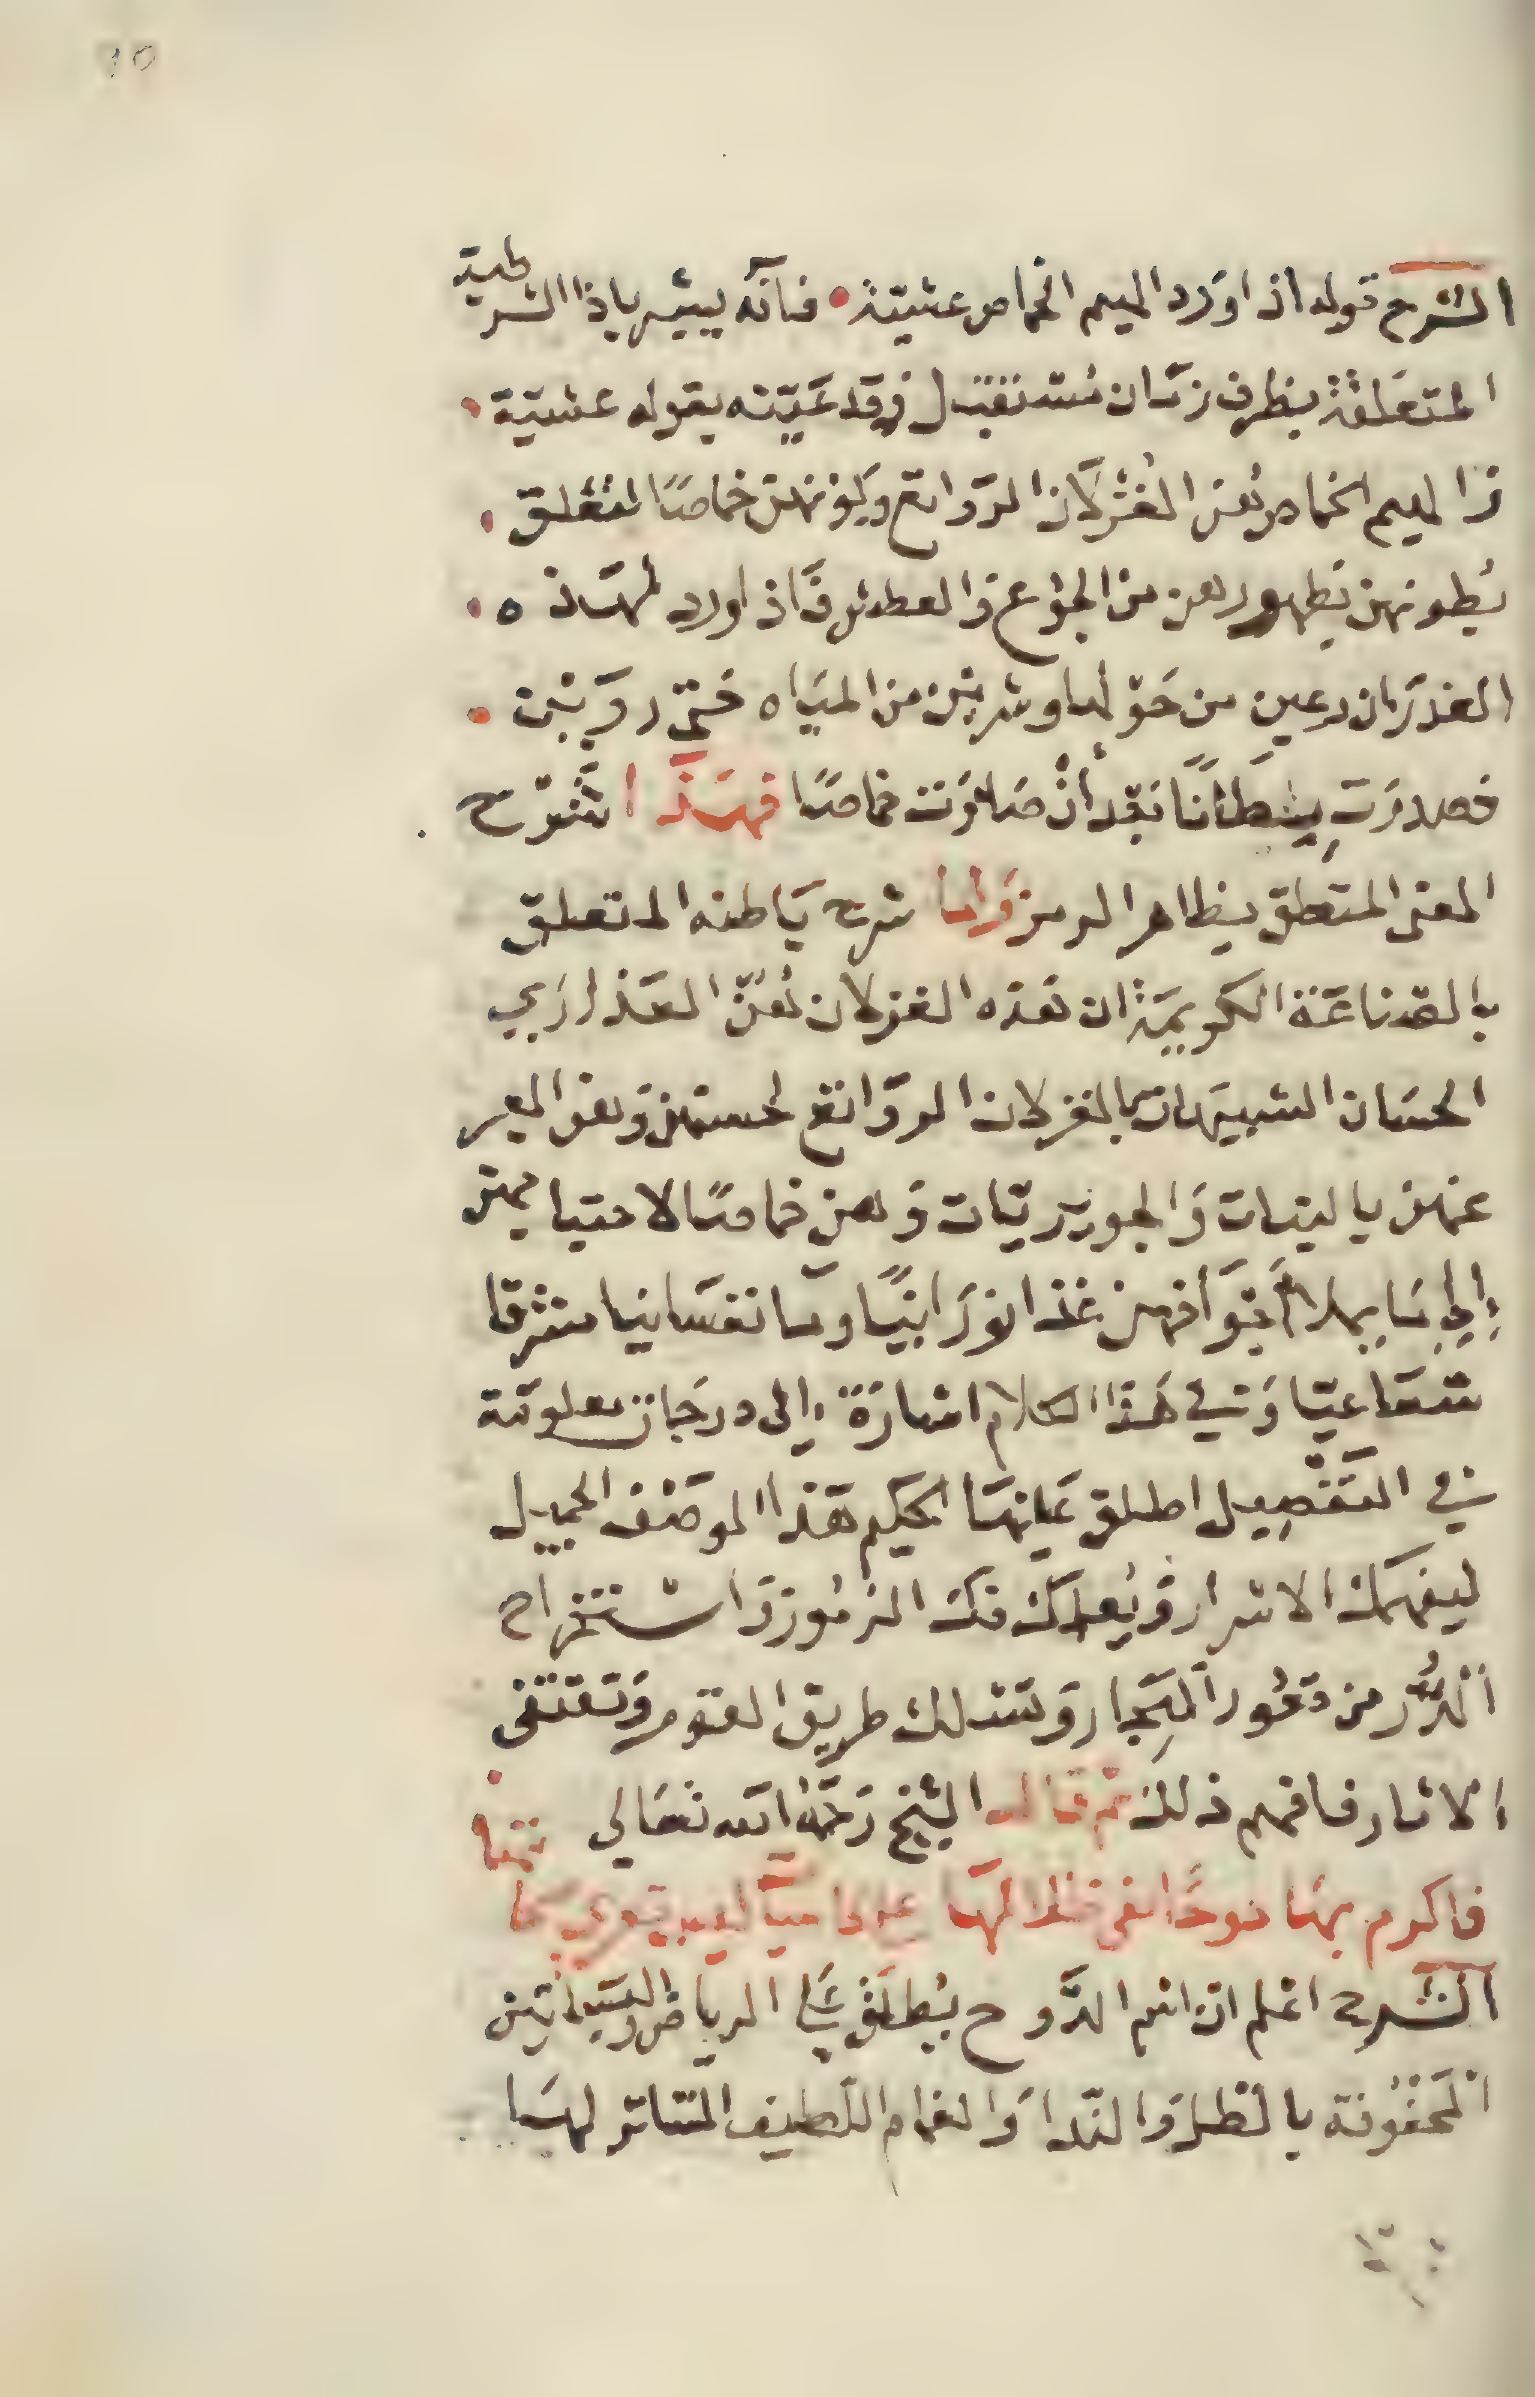 الشرح قوله اذا ورد الهيم الخماص عشية • فانه يشير باذا الشرطية
المتعلقة بظرف زمان مستقبل وقد عينه بقوله عشية •
والهيم الخماص هن الغزلان الرواتع وكونهن خماصا لتعلق •
بطونهن بظهورهن من الجوع والعطش فاذا وردن هذه •
الغدران رعين من حولها وشربن من المياه حتى روين •
فصدرت بطانا بعد ان صدرت خماصا فهذا شرح
المعنى المتعلق بظاهر الرمز واما شرح باطنه المتعلق
بالصناعة الكريمة ان هذه الغزلان هن العذارى
الحسان الشبيهات بالغزلان الرواتع لحسنهن وهو المعبر
عنهن بالبنات والجويريات وهن خماصا لاحتياجهن
إلى ما يملأ اجوافهن غذا نورانيا وما نفسانيا مشرقا
شعاعيا وفي هذا الكلام اشارة إلى درجات معلومة
في التفصيل اطلق عليها الحكيم هذا الوصف الجميل
ليفهمك الاسرار ويعلمك فك الرموز واستخراج
الدر من قعور البحار وتسلك طريق القوم وتقتفى
الاثار فافهم ذلك ثم قال الشيخ رحمه الله تعالى
فاكرم بها دوحا
الشرح اعلم ان اسم الدوح يطلق على الرياض والبساتين
المحفوفة بالظل والندا والغمام اللطيف المتناثر لها